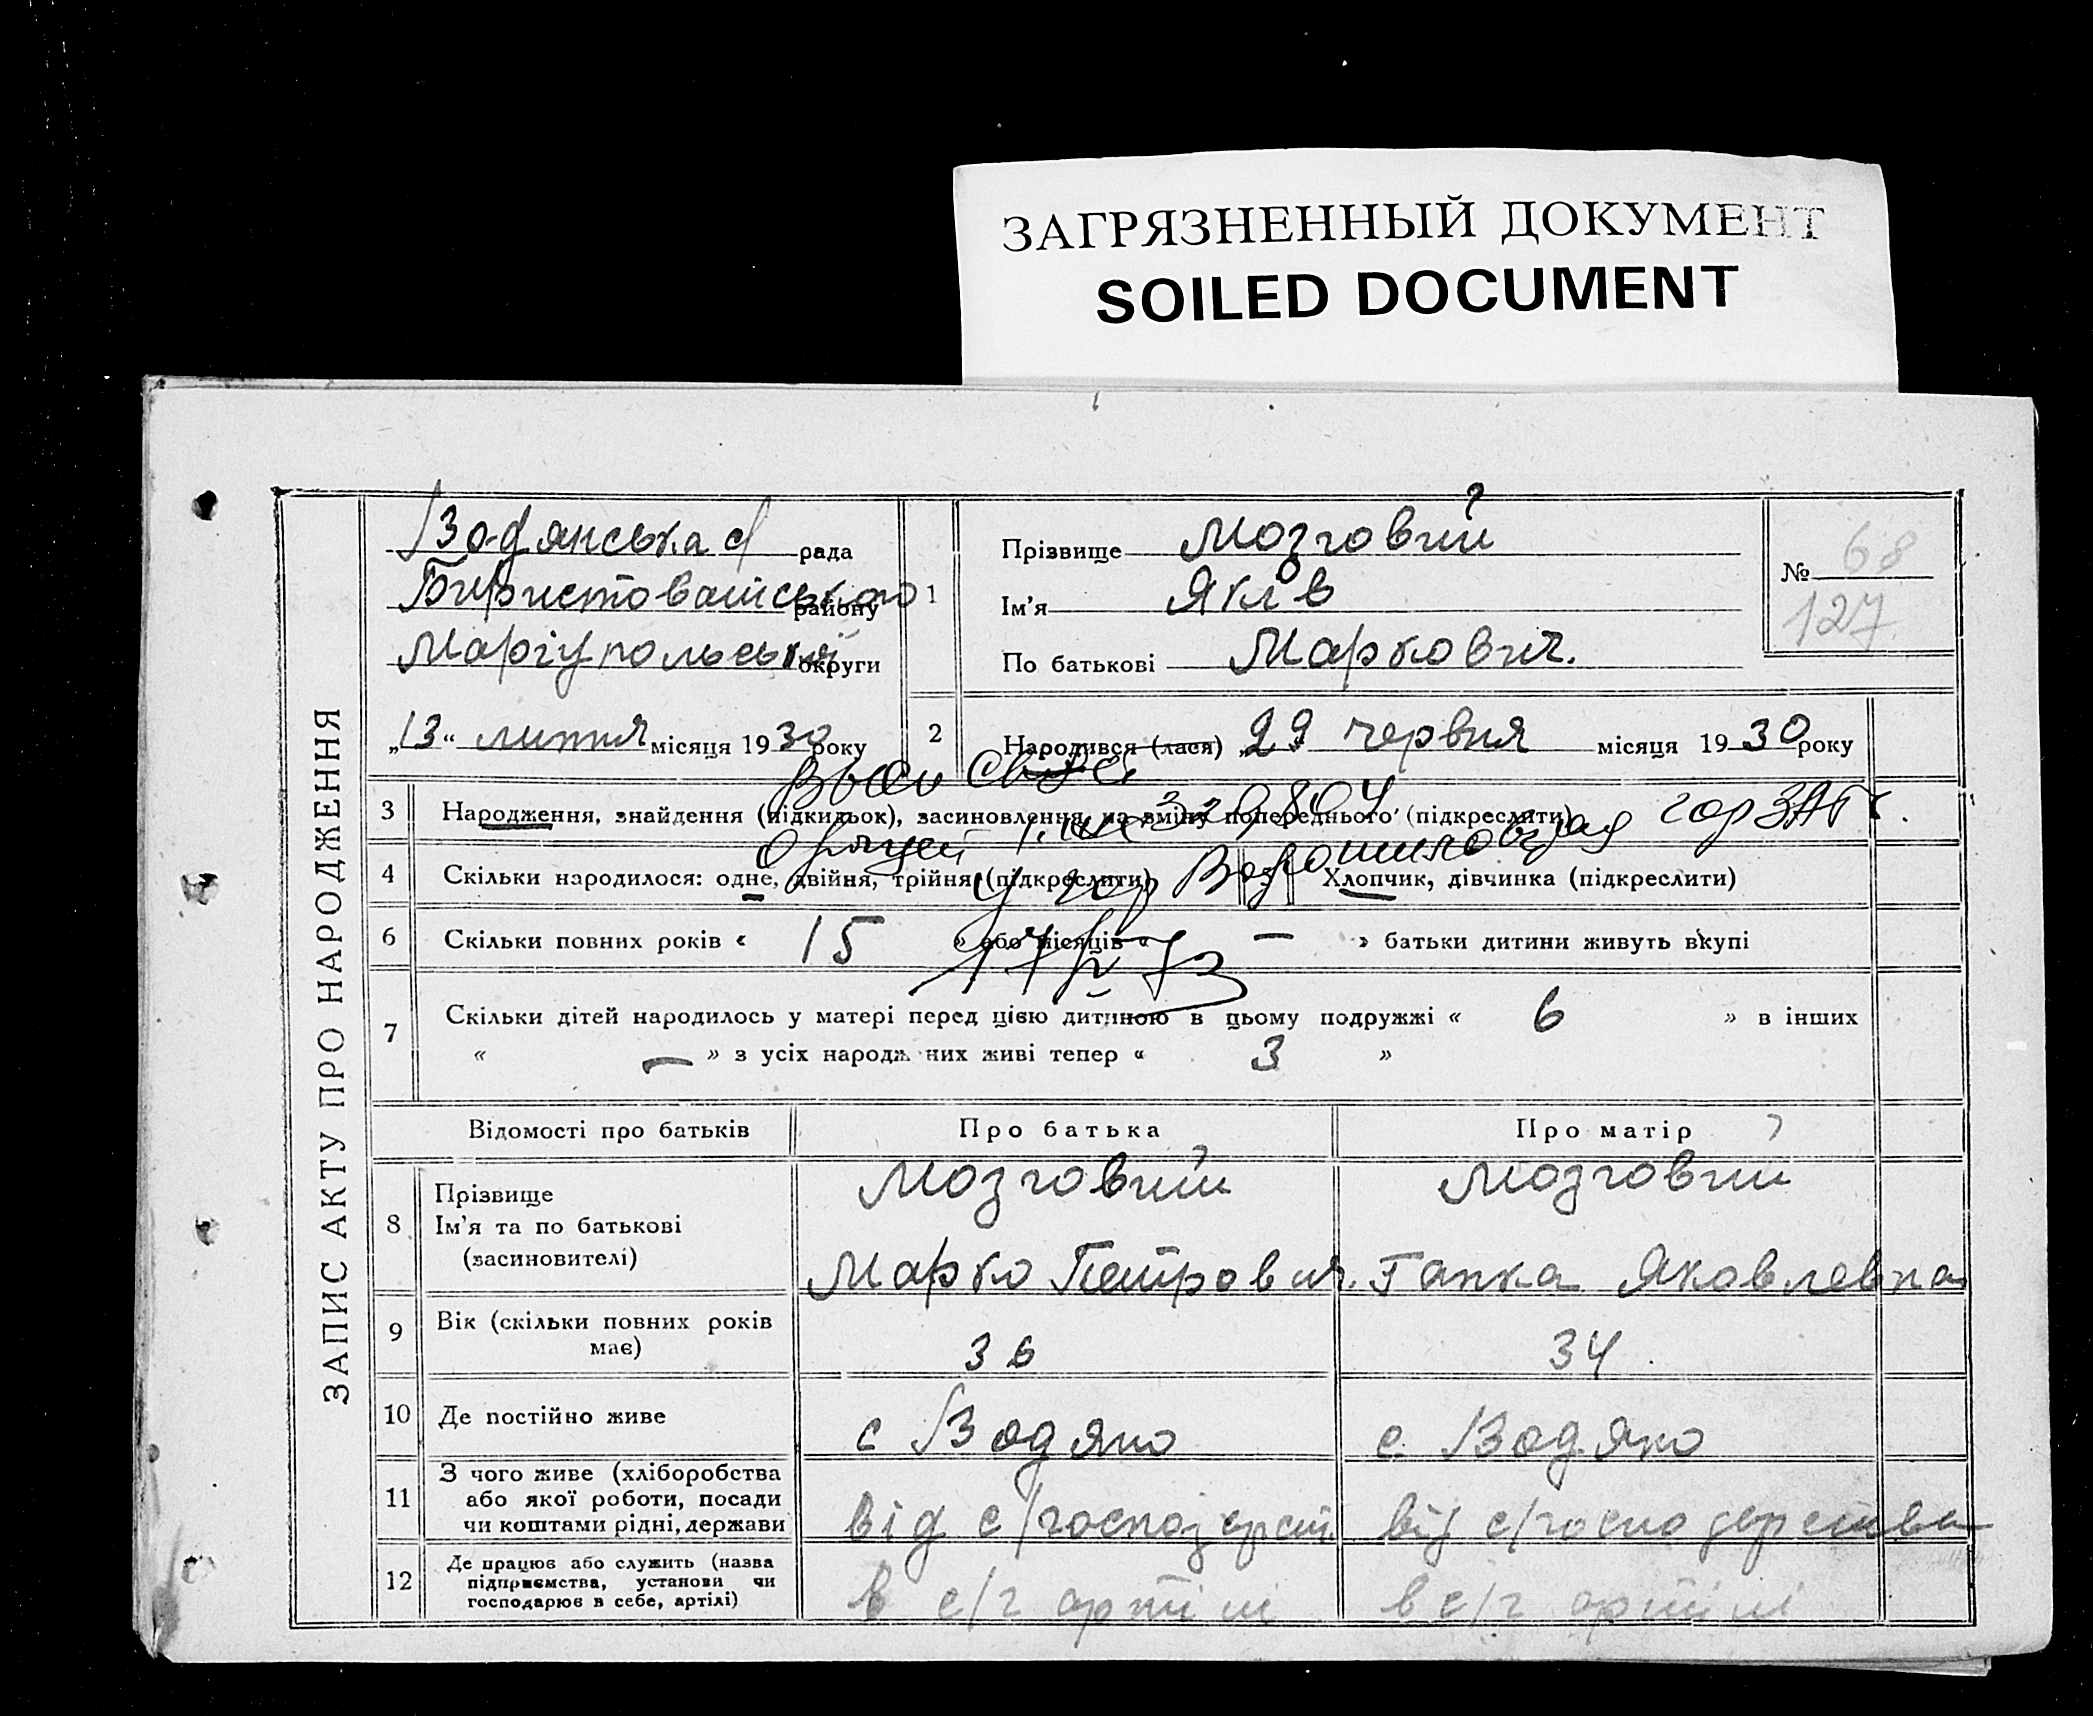 ЗАГРЯЗНЕННЫЙ ДОКУМЕНТ
SOILED DOCUMENT
ЗАПИС АКТУ ПРО НАРОДЖЕННЯ
Водянська с/ рада
району
Маріупольської округи
„13“ липня місяця 1930 року
1
Прізвище Мозговий
Ім'я Яків
По батькові Маркович.
№ 68
127
2
Народився (лася) „29 червня місяця 1930 року
3 Народження, знайдення (підкидьок), засиновлення, на зміну попереднього (підкреслити)
горЗАГС.
4 Скільки народилося: одне, двійня, трійня (підкреслити)
5 Хлопчик, дівчинка (підкреслити)
6 Скільки повних років « 15 » або місяців « — » батьки дитини живуть вкупі
17/IV 73
7 Скільки дітей народилось у матері перед цією дитиною в цьому подружжі « 6 » в інших
« — » з усіх народжених живі тепер « 3 »
Відомості про батьків
Про батька
Про матір
8 Прізвище
Ім'я та по батькові
(засиновителі)
Мозговий
Марко Петрович.
Мозговий
Гапка Яковлевна
9 Вік (скільки повних років
має)
36
34.
10 Де постійно живе
с Водяно
с. Водяно
11 З чого живе (хліборобства
або якої роботи, посади
чи коштами рідні, держави
від с/господарст
від с/господарства
12 Де працює або служить (назва
підприємства, установи чи
господарює в себе, артілі)
в с/г артілі
в с/г артілі